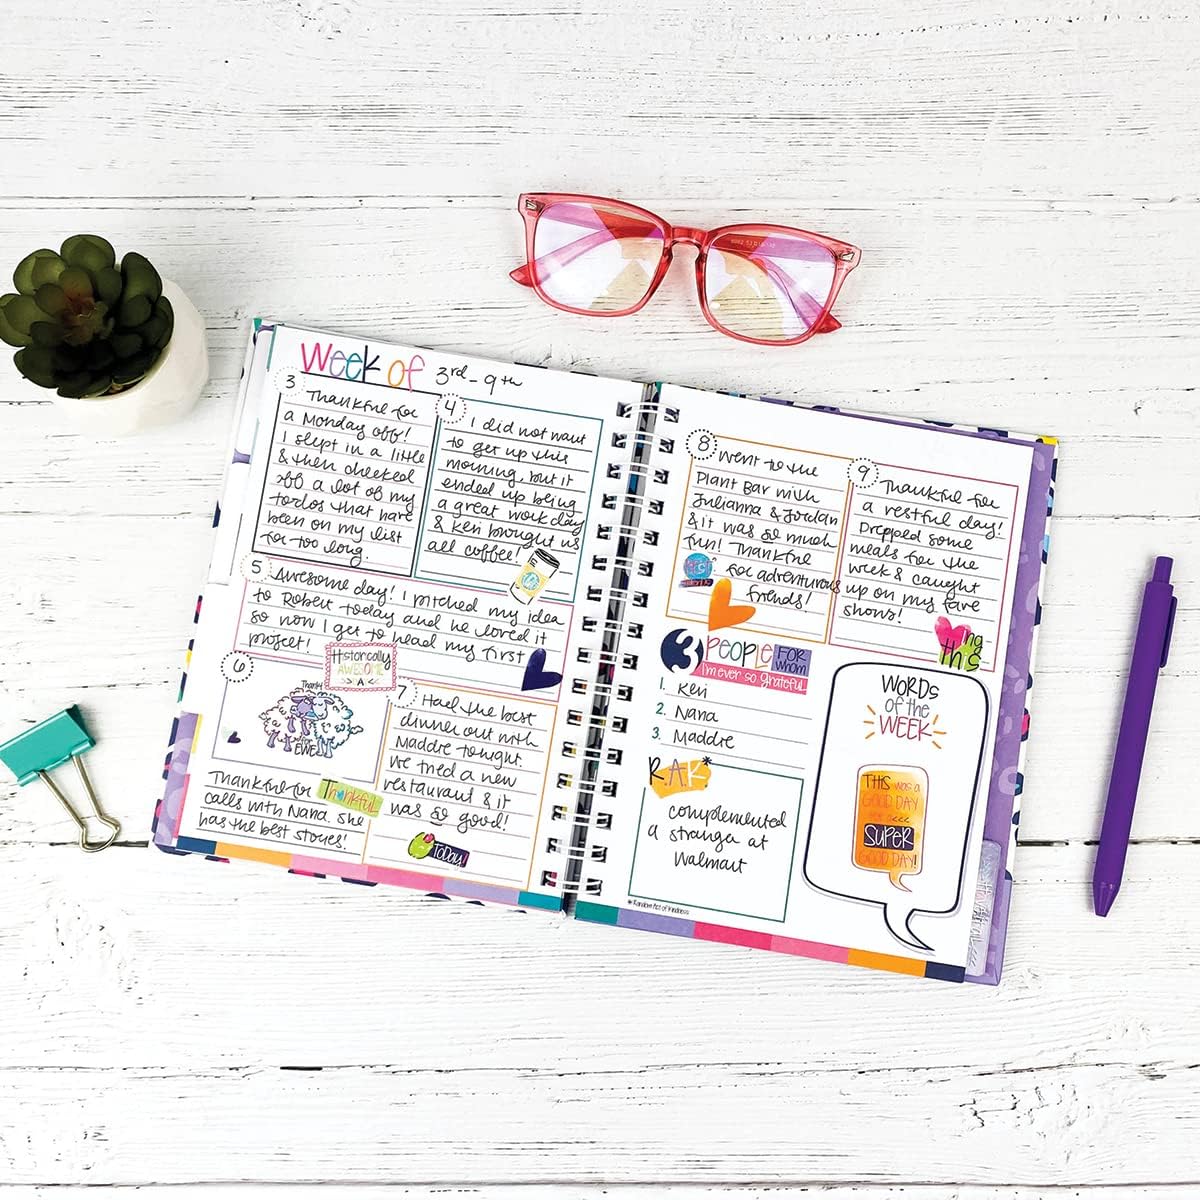 Week of 3rd - 9th
3
Thankful for
a Monday off!
I slept in a little
& then checked
off a lot of my
to dos that have
been on my list
for too long.
4
I did not want
to get up this
morning, but it
ended up being
a great work day
& Ken brought us
all coffee!
5
Awesome day! I pitched my idea
to Robert today and he loved it
so now I get to head my first
project!
Historically
AWESOME
>> A <<
6
EWE
Thankful for Thankful
calls with Nana. She
has the best stories!
7
Had the best
dinner out with
Maddie tonight.
We tried a new
restaurant & it
was so good!
TODAY!
8
Went to the
Plant Bar with
Julianna & Jordan
& it was so much
fun! Thankful
for adventurous
friends!
9
Thankful for
a restful day!
Prepped some
meals for the
week & caught
up on my fave
shows!
ing
this
3 PEOPLE FOR whom
I'm ever so grateful
1. Kevi
2. Nana
3. Maddie
R.A.K*
complemented
a stranger at
Walmart
* Random Act of Kindness
WORDS
of the
WEEK
THIS was a
GOOD DAY
SUPER
GOOD DAY!